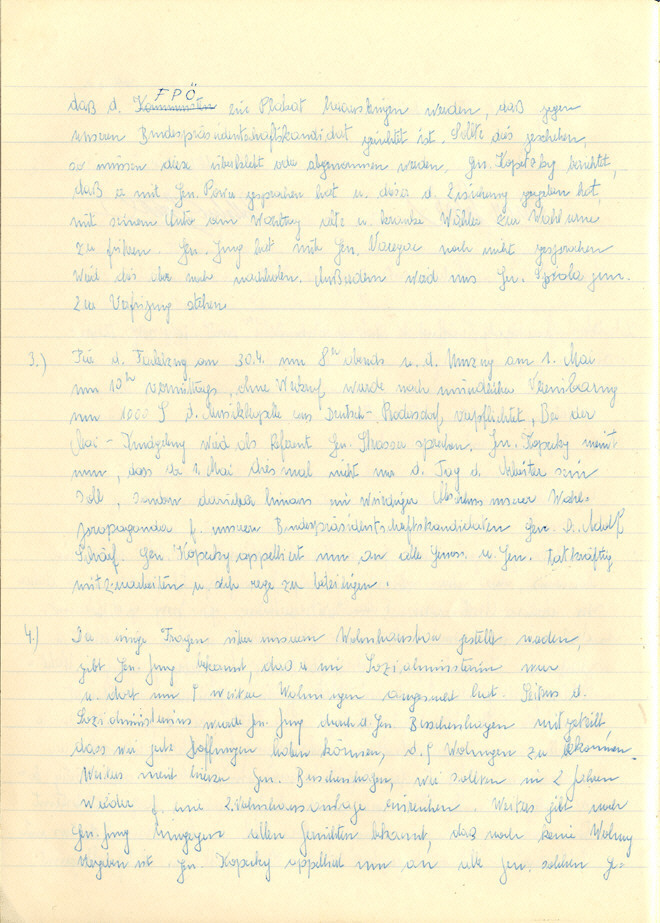 FPÖ
daß d. Kommunisten ein Plakat herausbringen werden, daß gegen
unseren Bundespräsidentschaftskandidat gerichtet ist. Sollte dies geschehen,
so müssen diese überklebt oder abgenommen werden. Gen. Kopetzky berichtet,
daß er mit Gen. gesprochen hat u. dieser d. Zusicherung gegeben hat,
mit seinem Auto am Wahltag alte u. kranke Wähler zur Wahlurne
zu führen. Gen. Jung hat mit Gen. noch nicht gesprochen
wird dies aber noch nachholen. Außerdem wird uns Gen. jun.
zur Verfügung stehen.
3.) Für d. Fackelzug am 30.4. um 8 h abends u. d. Umzug am 1. Mai
um 10 h vormittags, ohne Weckruf, wurde nach mündlicher Vereinbarung
um 1000 S d. Musikkapelle aus Deutsch-, verpflichtet. Bei der
Mai-Kundgebung wird als Referent Gen. Strasser sprechen. Gen. Kopecky meint
nun, dass der 1. Mai diesmal nicht nur d. Tag d. Arbeiter sein
soll, sondern darüber hinaus ein würdiger Abschluss unserer Wahl-
propaganda f. unseren Bundespräsidentschaftskandidaten Gen. Dr. Adolf
Schärf. Gen. Kopecky appelliert nun an alle Genoss. u. Gen. tatkräftig
mitzuarbeiten u. sich rege zu beteiligen.
4.) Da einige Fragen über unseren Wohnhausbau gestellt wurden,
gibt Gen. Jung bekannt, daß er im Sozialministerium war
u. dort um 8 weitere Wohnungen angesucht hat. Seitens d.
Sozialministeriums wurde Gen. Jung durch d. Gen. mitgeteilt,
dass wir gute Hoffnungen haben können, d. 8 Wohnungen zu bekommen.
Weiters meint Gen., wir sollten in 2 Jahren
wieder f. eine 2. Wohnhausanlage einreichen. Weiters gibt noch
Gen. Jung hingegen allen Gerüchten bekannt, daß noch keine Wohnung
vergeben ist. Gen. Kopecky appelliert nun an alle Gen. solchen Ge-